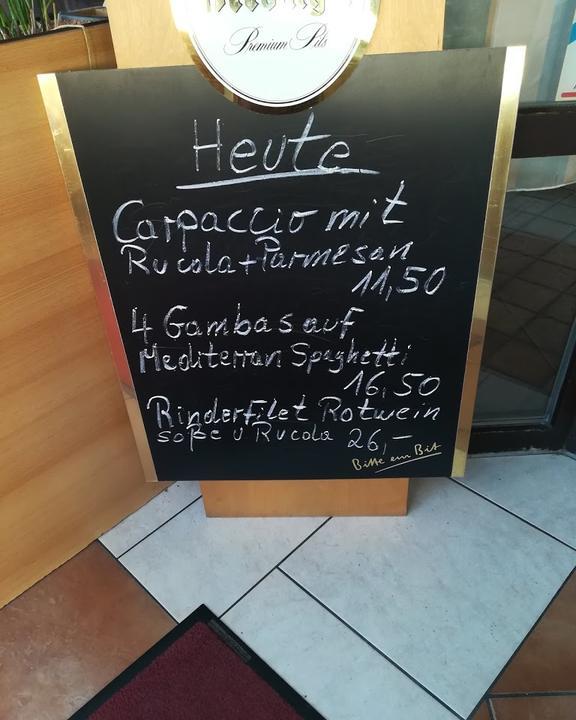 Premium Pils
Heute
Carpaccio mit
Rucola + Parmesan
11,50
4 Gambas auf
Mediterran Spaghetti
16,50
Rinderfilet Rotwein
soße u Rucola 26,-
Bitte ein Bit